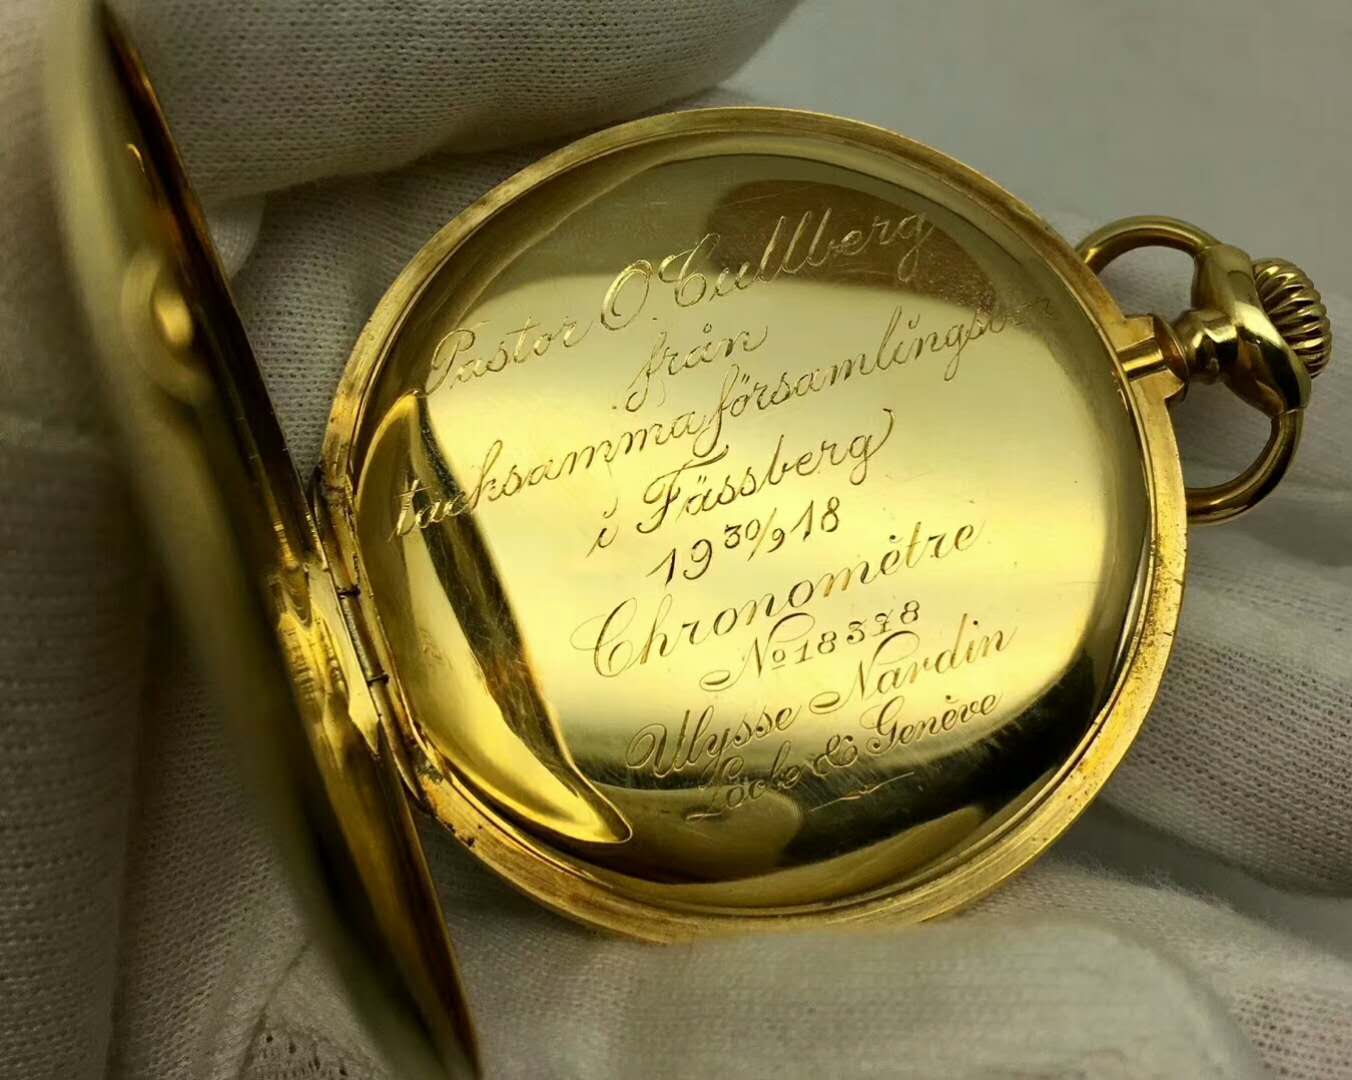 Pastor O. Cullberg
från
tacksamma församlingsbor
i Fässberg
19 30/9 18
Chronomètre
No 18378
Ulysse Nardin
Locle & Genève